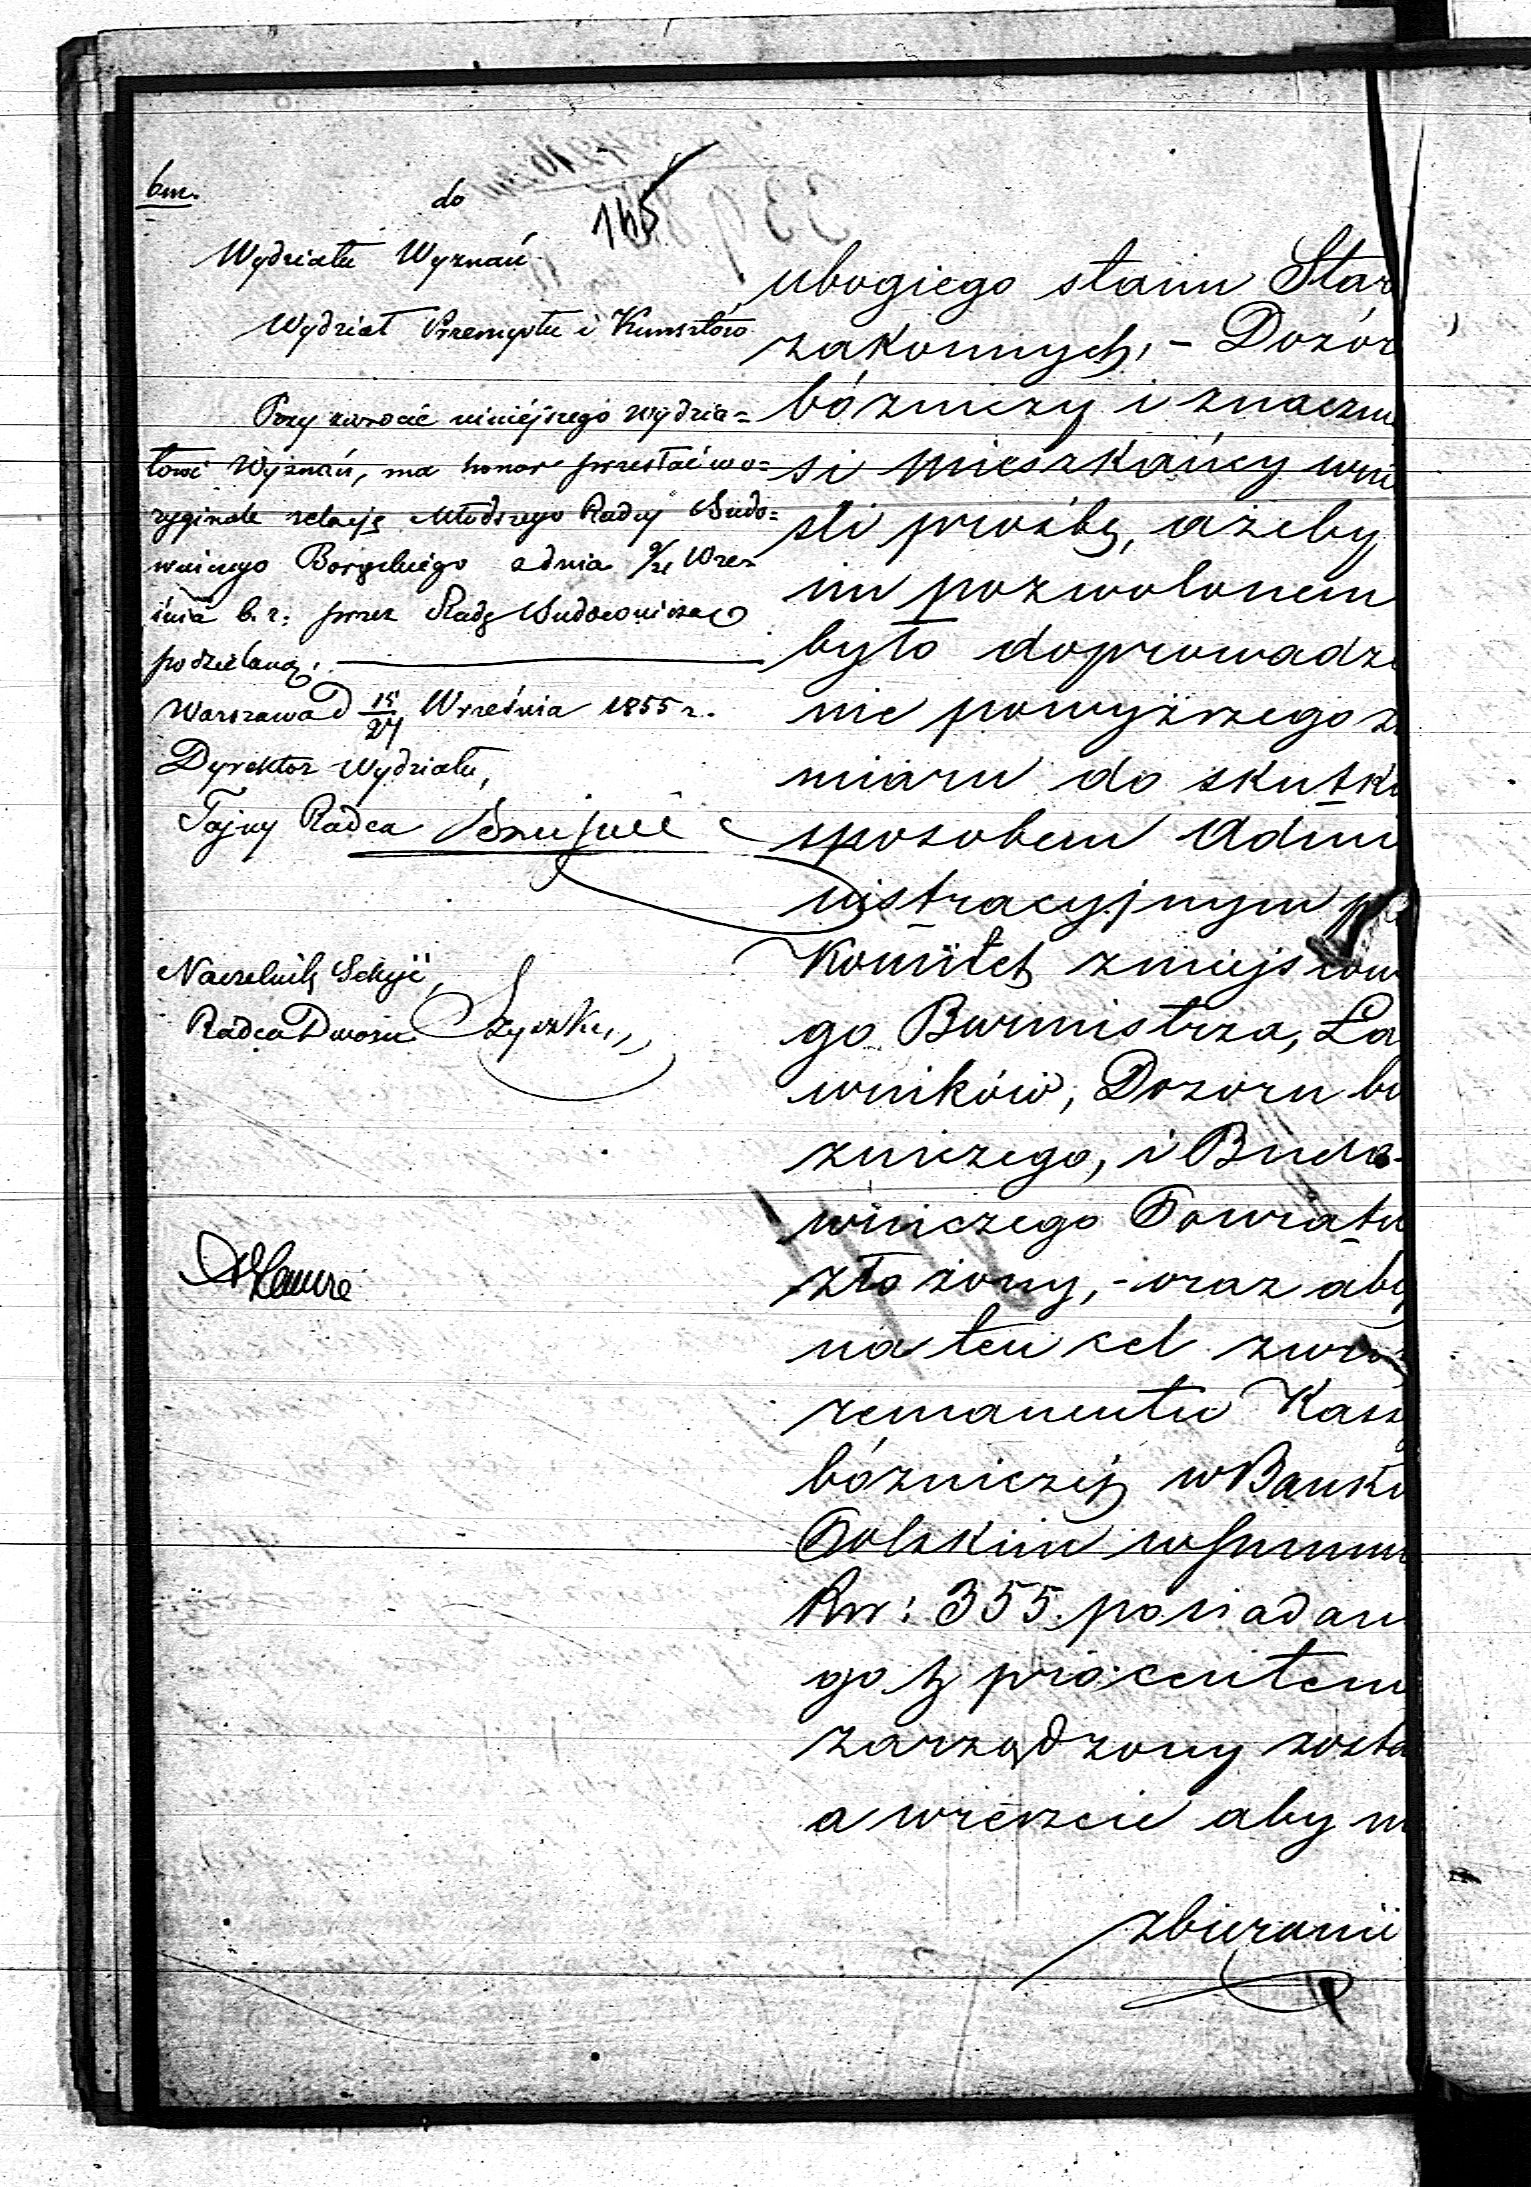 bm.
do
165
Wydziału Wyznań
Wydział Przemysłu i Kunsztów
Przy zwrocie niniéjszego Wydzia=
łowi Wyznań, ma honor przesłać w o=
ryginale relacyę Młodszego Radcy Budo=
wniczego z dnia 9/21 Wrze=
śnia b. r. przez Radę Budowniczą
podzielaną.
Warszawa d 15/27 Września 1855 r.
Dyrektor Wydziału,
Tajny Radca
Naczelnik Sekcji,
Radca Dworu
ubogiego stanu Star
zakonnych, - Dozór
bóźniczy i znaczni
si mieszkańcy wnie
śli prośbę, ażeby
im pozwolonem
było doprowadze
nie powyższego za
miaru do skutku
sposobem Admi
nistracyjnym
Komitet z miejscowe
go Burmistrza, Ła
wników, Dozoru bó
źniczego, i Budo-
wniczego Powiatu
złożony, - oraz aby
na ten cel zwrot
remanentu Kassy
bóźniczéj w Banku
Polskim w summie
Rsr: 355. posiadane
go z procentem
zarządzony został
a wreszcie aby w
zbieranie